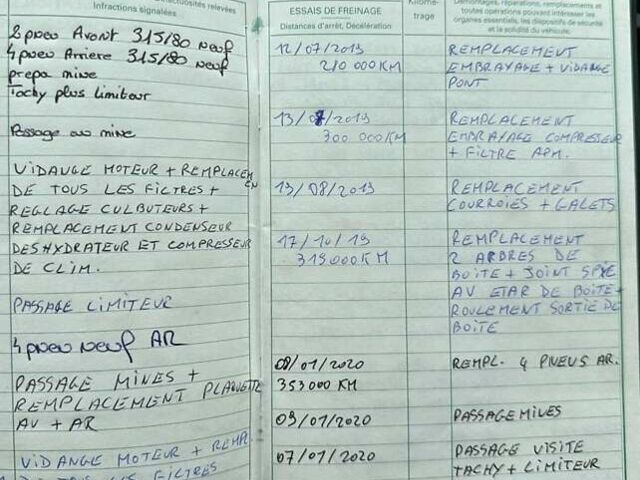 défectuosités relevées
Infractions signalées
2 pneu Avant 315/80 Neuf
4 pneu Arriere 315/80 neuf
prepa mine
Tachy plus limiteur
Passage au mine
VIDANGE MOTEUR + REMPLACEM
EN
DE TOUS LES FILTRES +
REGLAGE CULBUTEURS +
REMPLACEMENT CONDENSEUR
DESHYDRATEUR ET COMPRESSEUR
DE CLIM.
PASSAGE LIMITEUR
4 pneu neuf AR
PASSAGE MINES +
REMPLACEMENT PLAQUETTE
AV + AR
VIDANGE MOTEUR + REMPL.
DE TOUS LES FILTRES
ESSAIS DE FREINAGE
Distances d'arrêt, Décélération
12/07/2019
210 000 KM
13/07/2019
300 000 KM
13/08/2019
17/10/19
319000 KM
08/01/2020
353 000 KM
09/01/2020
07/01/2020
Kilomé-
trage
Démontages, réparations, remplacements et
toutes opérations pouvant intéresser les
organes essentiels, les dispositifs de sécurité
et la solidité du véhicule.
REMPLACEMENT
EMBRAYAGE + VIDANGE
PONT
REMPLACEMENT
EMBRAYAGE COMPRESSEUR
+ FILTRE APM.
REMPLACEMENT
COURROIES + GALETS
REMPLACEMENT
2 ARBRES DE
BOITE + JOINT SPIE
AV ETAR DE BOITE +
ROULEMENT SORTIE DE
BOITE
REMPL. 4 PNEUS AR.
PASSAGE MINES
PASSAGE VISITE
TACHY + LIMITEUR